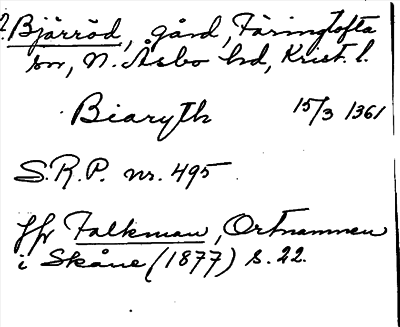 Bjärröd, gård, Färingtofta
sn, N. Åsbo hd, Krist. l.
Biaryth 15/3 1361
S.R.P. nr. 495
Jfr Falkman, Ortnamnen
i Skåne (1877) s. 22.